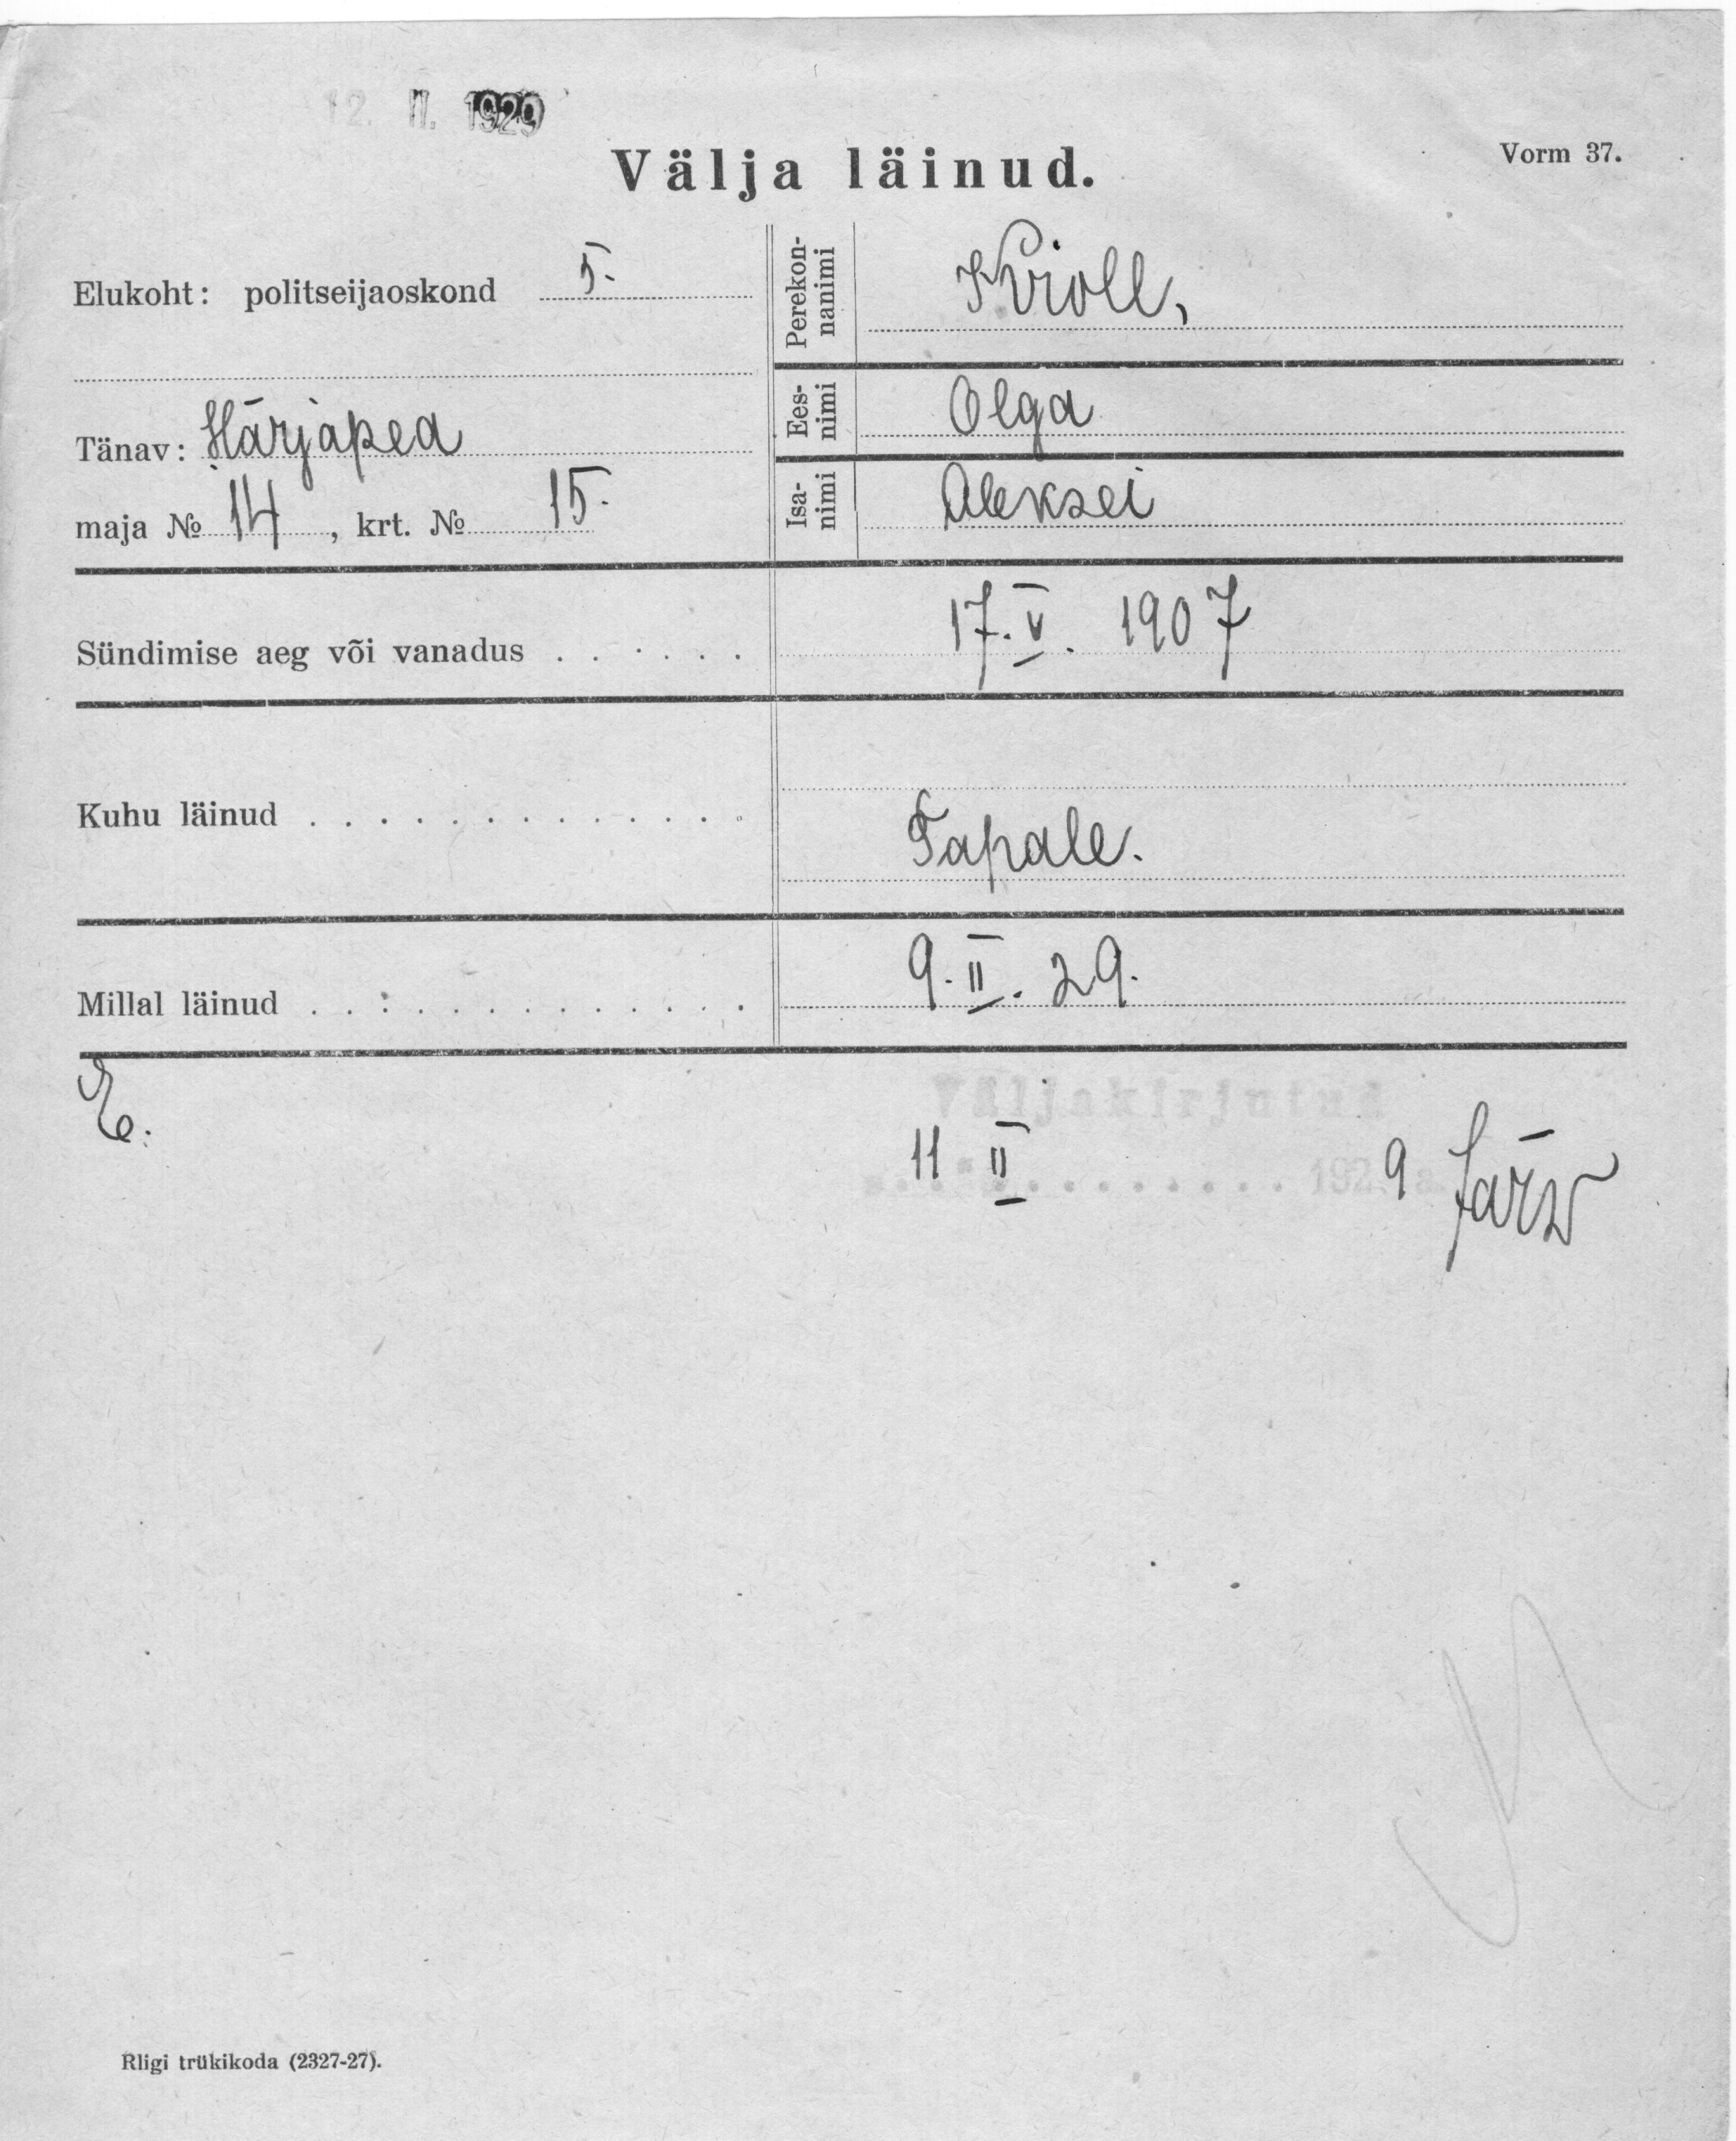 12. II. 1929
Välja läinud.
Vorm 37.
Elukoht: politseijaoskond 5.
Tänav: Härjapea
maja № 14, krt. № 15.
Perekon-
nanimi
Kroll,
Ees-
nimi
Olga
Isa-
nimi
Aleksei
Sündimise aeg või vanadus . . . . . . 17. V. 1907
Kuhu läinud . . . . . . . . . . . . . Tapale.
Millal läinud . . . . . . . . . . . . . 9. II. 29.
E.
Väljakirjutud
11 II 1929 a. Järv
Riigi trükikoda (2327-27).